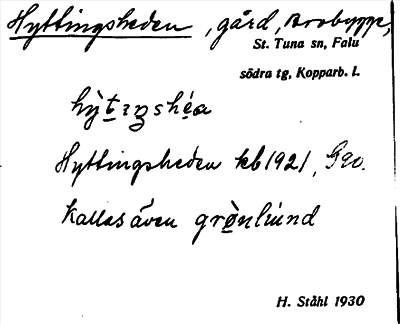 Hyttingsheden, gård, Brobygge,
St. Tuna sn, Falu
södra tg, Kopparb. l.
hỳt̠ɪŋshéa
Hyttingsheden kb 1921, Geo.
Kallas även grø̀nlund
H. Ståhl 1930